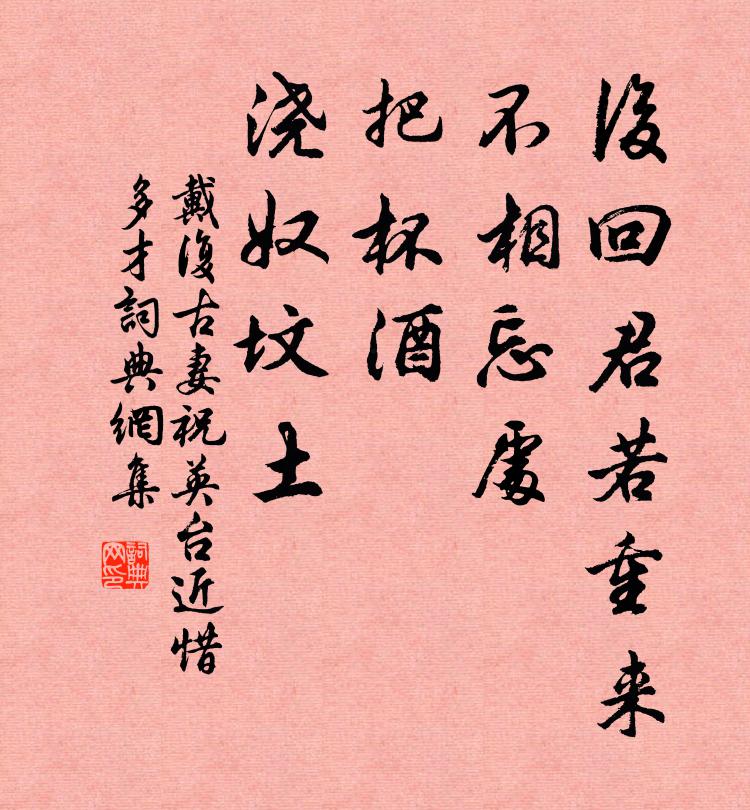 後回君若重来
不相忘處
把杯酒
浇奴坟土
戴復古妻祝英台近惜
多才詞典網集
詞典网印